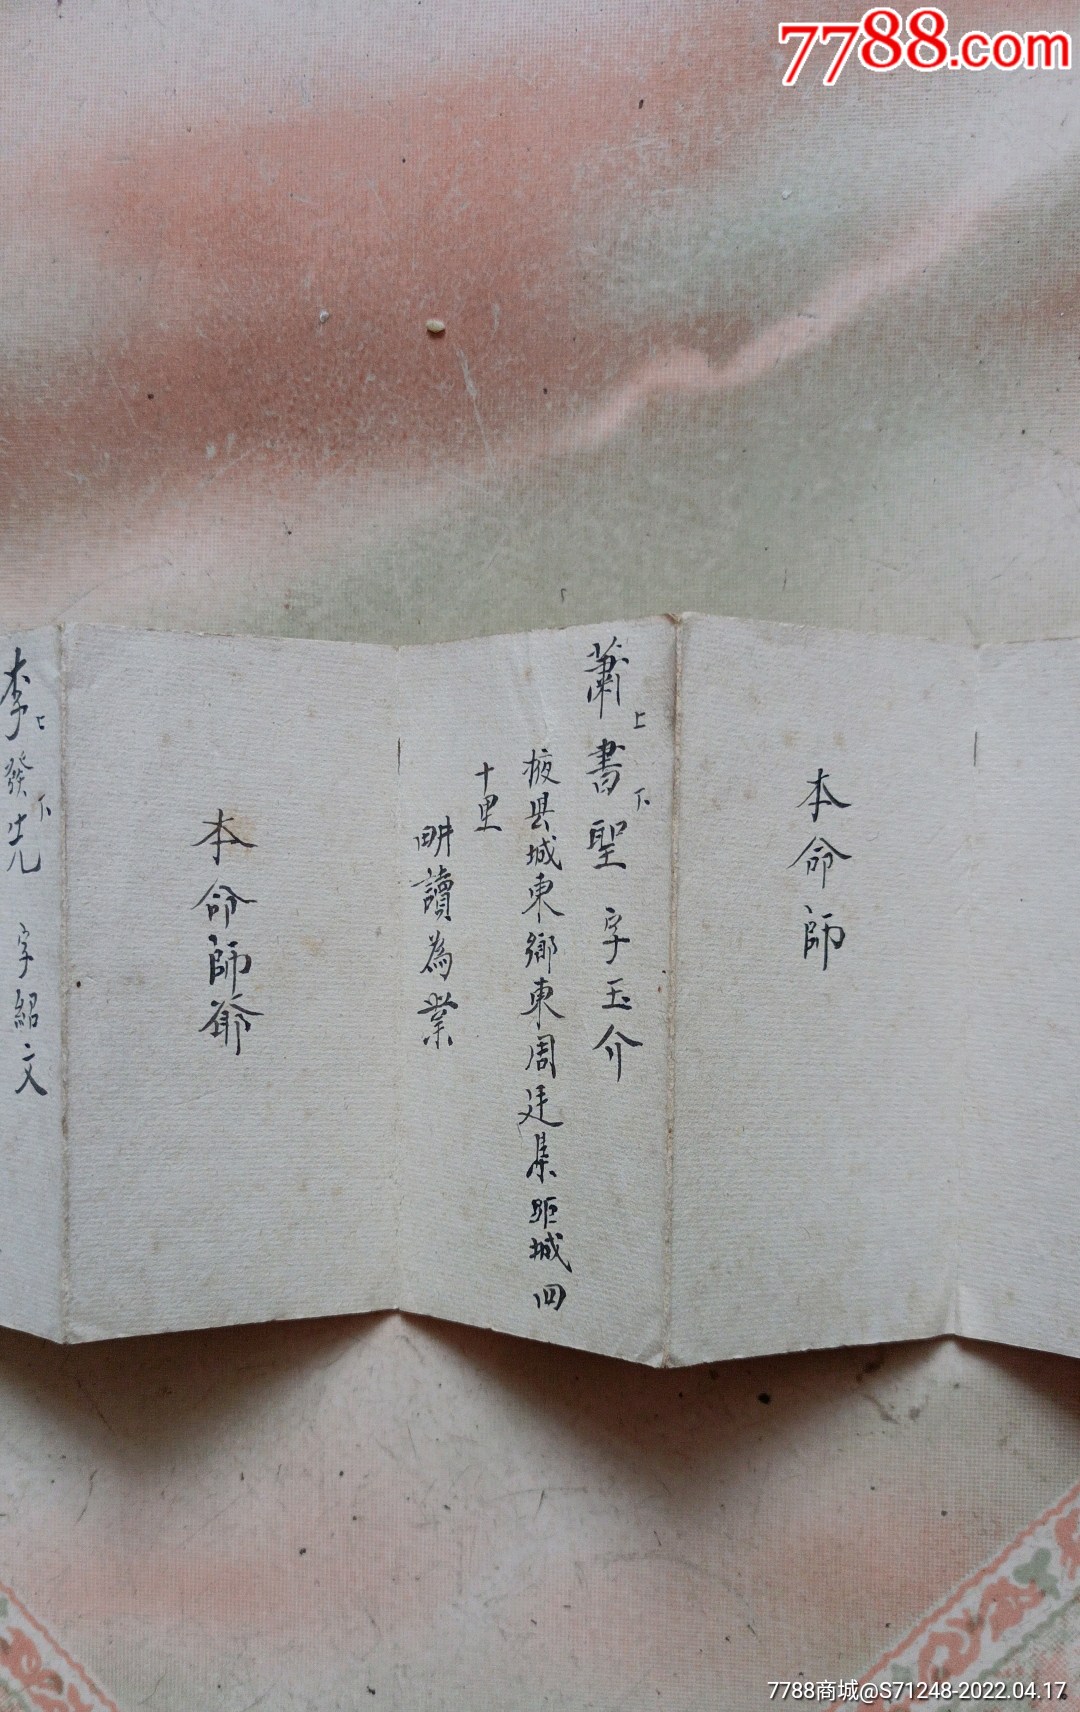 7788.com
本命師
蕭上書下聖 字玉介
掖县城東鄉東周廷集距城四
十里
畊讀為業
本命師爺
李上發下先 字紹文
7788商城@S71248-2022.04.17